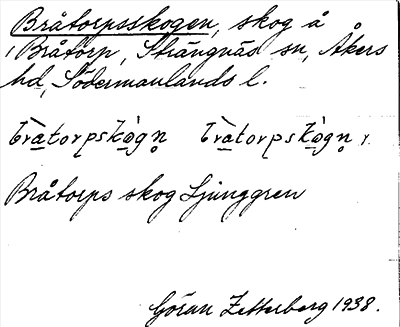 Bråtorpsskogen, skog å
Bråtorp, Strängnäs sn, Åkers
hd, Södermanlands l.
Bråtorps skog Ljunggren
Göran Zetterberg 1938.